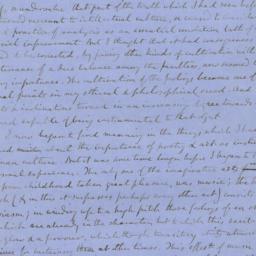 or undervalue that part of the truth which I had seen before
recreant to intellectual culture, or ceased to consider
& practice of analysis as an essential condition both of
social improvement. But I thought that it had consequences
to be corrected, by joining other kinds of cultivation with
tenance of a due balance among the faculties, now seemed
ary importance. The cultivation of the feelings became one of
nal points in my ethical & philosophical creed. And
inclinations turned in an increasing degree towards
capable of being instrumental to that object.
I now began to find meaning in the things which I had
heard about the importance of poetry & art as instruments
man culture. But it was some time longer before I began to
sonal experience. The only one of the imaginative arts
from childhood taken great pleasure, was music; the best
(& in this it surpasses perhaps every other art) consists
iasm; in winding up to a high pitch those feelings of an
which are already in the character, but to which this excite
glow & a fervour, which though transitory
for sustaining them at other times. This effect of music